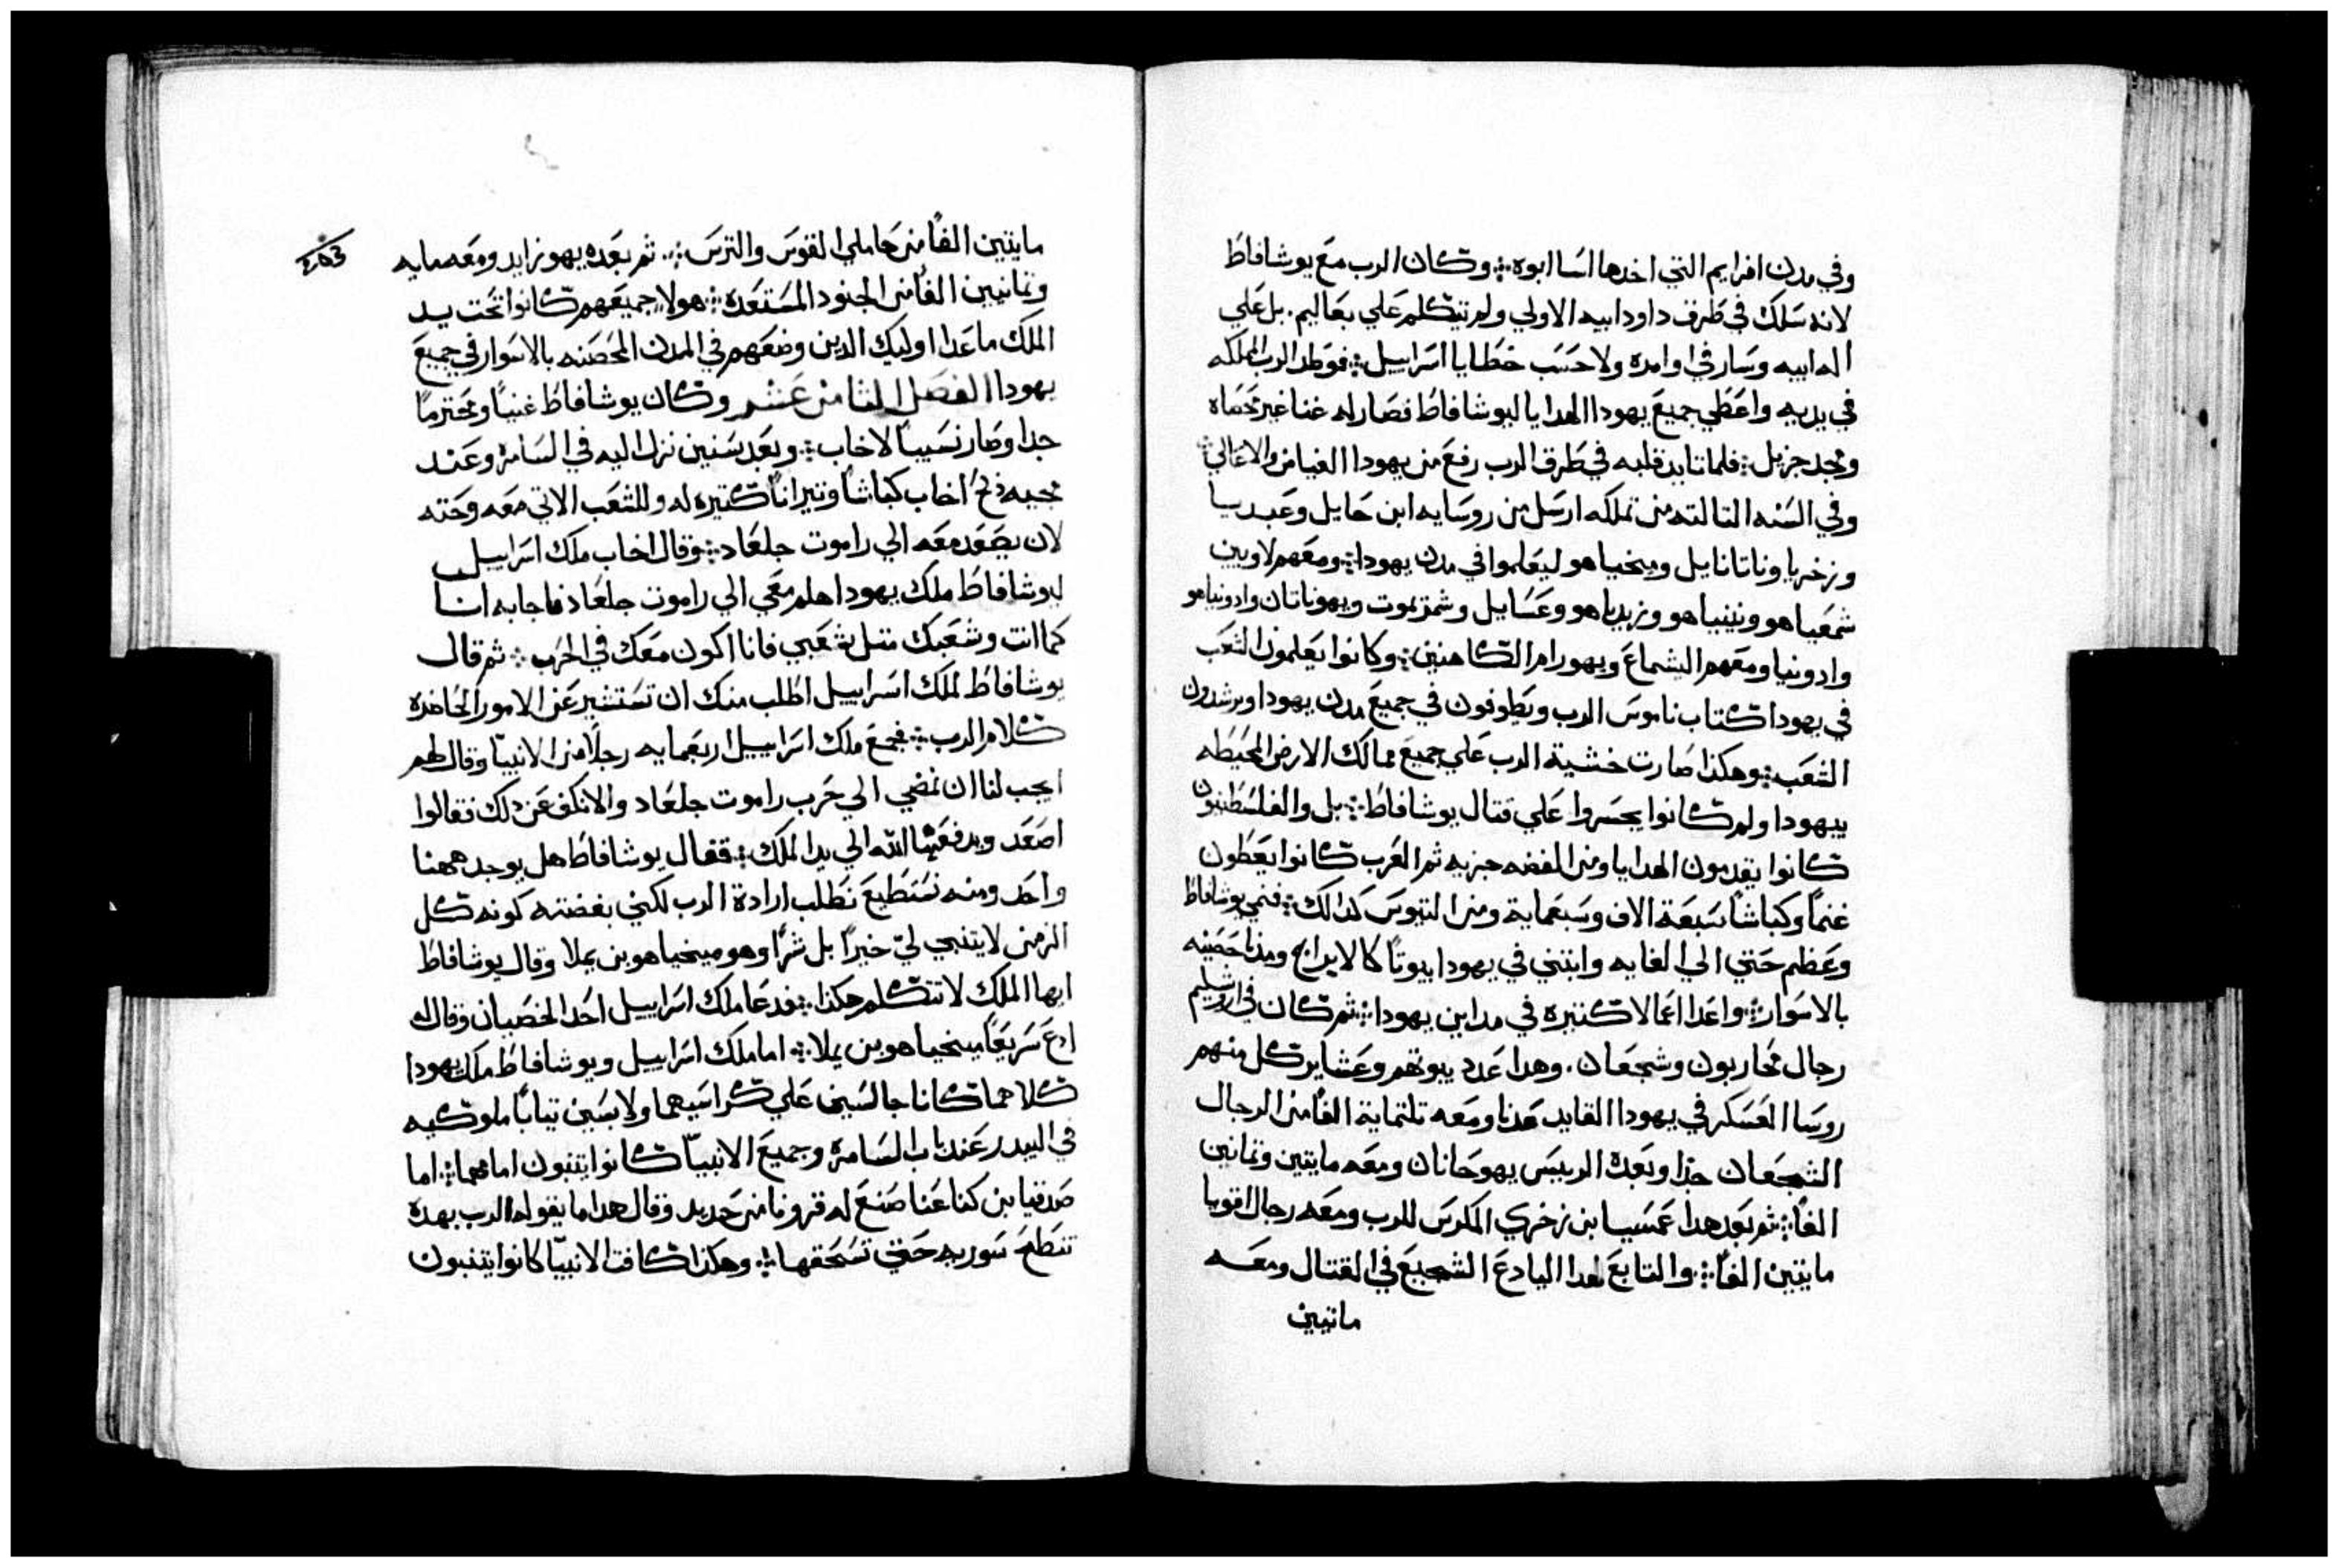 وفي مدن افرايم التي اخدها اسا ابوه ⁘ وكان الرب مع يوشافاط
لانه سلك في طرق داود ابيه الاولي ولم يتكلم علي بعاليم. بل علي
اله ابيه وسار في اوامره ولا حسب خطايا اسراييل ⁘ فوطد الرب المملكه
في يديه واعطي جميع يهودا الهدايا ليوشافاط فصار له غنا غير محصاه
ومجد جزيل ⁘ فلما تايد قلبه في طرق الرب رفع من يهودا الغياض والاعالي ⁘
وفي السنه التالته من تملكه ارسل من روسايه ابن حايل وعبديا
وزخريا وناتانايل وميخياهو ليعلموا في مدن يهودا ⁘ ومعهم لاويين
شمعياهو ونينياهو وزبدياهو وعسايل وشمريموت ويهوناتان وادونياهو
وادونيا ومعهم اليشماع ويهورام الكاهنين ⁘ وكانوا يعلمون الشعب
في يهودا كتاب ناموس الرب ويطوفون في جميع مدن يهودا ويرشدون
الشعب ⁘ وهكذا صارت خشية الرب علي جميع ممالك الارض المحيطه
بيهودا ولم كانوا يجسروا علي قتال يوشافاط ⁘ بل والفلسطنيون
كانوا يقدمون الهدايا ومن الفضه جزيه ثم العرب كانوا يعطون
غنماً وكباشاً سبعة الاف وسبعماية ومن التيوس كدالك ⁘ فنمي يوشافاط
وعظم حتي الي الغايه وابتني في يهودا بيوتاً كالابراج ومدنا حصينه
بالاسوار ⁘ واعدا اعمالا كتيره في مداين يهودا ⁘ ثم كان في اورشليم
رجال محاربون وشجعان. وهدا عدد بيوتهم وعشاير كل منهم
روسا العسكر في يهودا القايد عدنا ومعه تلتماية الفاً من الرجال
الشجعان جدا وبعده الرييس يهوحانان ومعه مايتين وتمانين
الفاً ⁘ ثم بعد هدا عمسيا بن زخري المكرس للرب ومعه رجال اقويا
مايتين الفاً ⁘ والتابع لهدا اليادع الشجيع في القتال ومعه
ماتيين
مايتين الفاً من حاملي القوس والترس ⁘ ثم بعده يهوزابد ومعه مايه
وتمانيين الفاً من الجنود المستعده ⁘ هولاء جميعهم كانوا تحت يد
الملك ما عدا اوليك الدين وضعهم في المدن المحصنه بالاسوار في جميع
يهودا الفصل التامن عشر وكان يوشافاط غنياً ومحترماً
جدا وصار نسيباً لاخاب ⁘ وبعد سنين نزل اليه في السامره وعند
مجيه ذبح اخاب كباشاً وتيراناً كتيره له وللشعب الاتي معه وحته
لان يصعد معه الي راموت جلعاد ⁘ وقال اخاب ملك اسراييل
ليوشافاط ملك يهودا هلم معي الي راموت جلعاد فاجابه انا
كما انت وشعبك متل شعبي فانا اكون معك في الحرب ⁘ ثم قال
يوشافاط لملك اسراييل اطلب منك ان تستشير عن الامور الحاضره
كلام الرب ⁘ فجمع ملك اسراييل اربعمايه رجلاً من الانبيا وقال لهم
ايجب لنا ان نمضي الي حرب راموت جلعاد والا نكف عن ذلك فقالوا
اصعد ويدفعها الله الي يد الملك ⁘ فقال يوشافاط هل يوجد ههنا
واحد ومنه نستطيع نطلب ارادة الرب لكني بغضته كونه كل
الزمن لا يتنبي لي خيراً بل شراً وهو ميخياهو بن يملا وقال يوشافاط
ايها الملك لا تتكلم هكذا ⁘ فدعا ملك اسراييل احد الخصيان وقال له
ادع سريعاً ميخياهو بن يملا ⁘ اما ملك اسراييل ويوشافاط ملك يهودا
كلاهما كانا جالسين علي كراسيهما ولابسين تياباً ملوكيه
في البيدر عند باب السامره وجميع الانبيا كانوا يتنبون امامهما ⁘ اما
صدقيا بن كناعنا صنع له قرونا من حديد وقال هدا ما يقوله الرب بهده
تنطح سوريه حتي تسحقها ⁘ وهكذا كافت الانبيا كانوا يتنبون